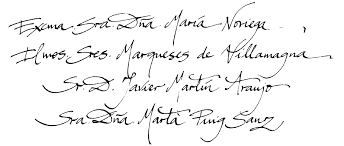 Exema Sra Dña María Noriega
Ilmos. Sres. Marqueses de Villamagna
Sr. D. Javier Martín Araujo
Sra Dña Marta Puig Sanz